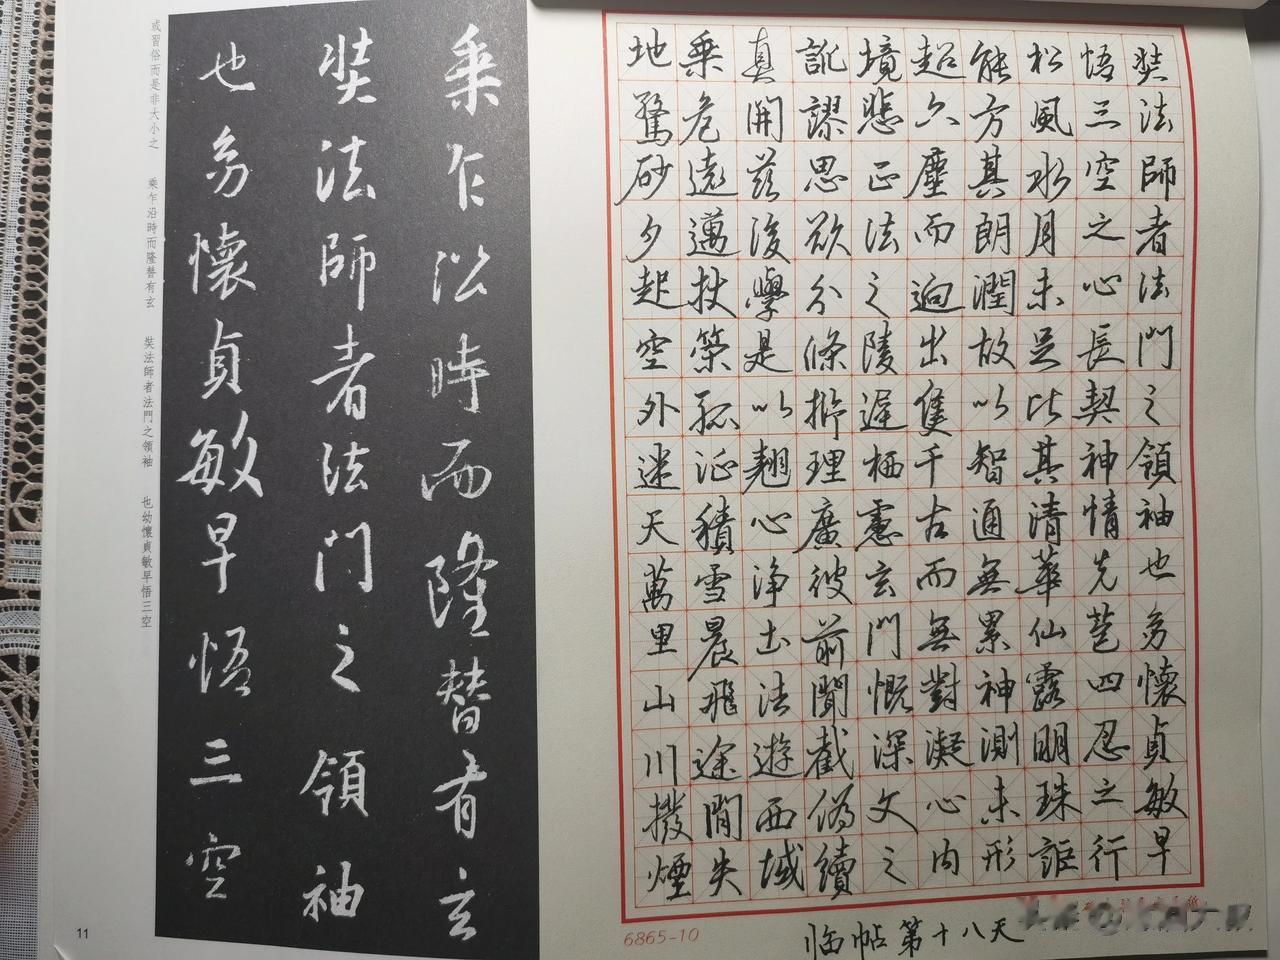 或習俗而是非大小之 乘乍沿時而隆替有玄 奘法師者法門之領袖 也幼懷貞敏早悟三空
乘乍沿時而隆替有玄
奘法師者法門之領袖
也幼懷貞敏早悟三空
11
奘法師者法門之領袖也幼懷貞敏早
悟三空之心長契神情先苞四忍之行
松風水月未足比其清華仙露明珠詎
能方其朗潤故以智通無累神測未形
超六塵而迥出隻千古而無對凝心內
境悲正法之陵遲栖慮玄門慨深文之
訛謬思欲分條析理廣彼前聞截偽續
真開茲後學是以翹心淨土法遊西域
乘危遠邁杖策孤征積雪晨飛途閒失
地驚砂夕起空外迷天萬里山川撥煙
6865-10
临帖第十八天